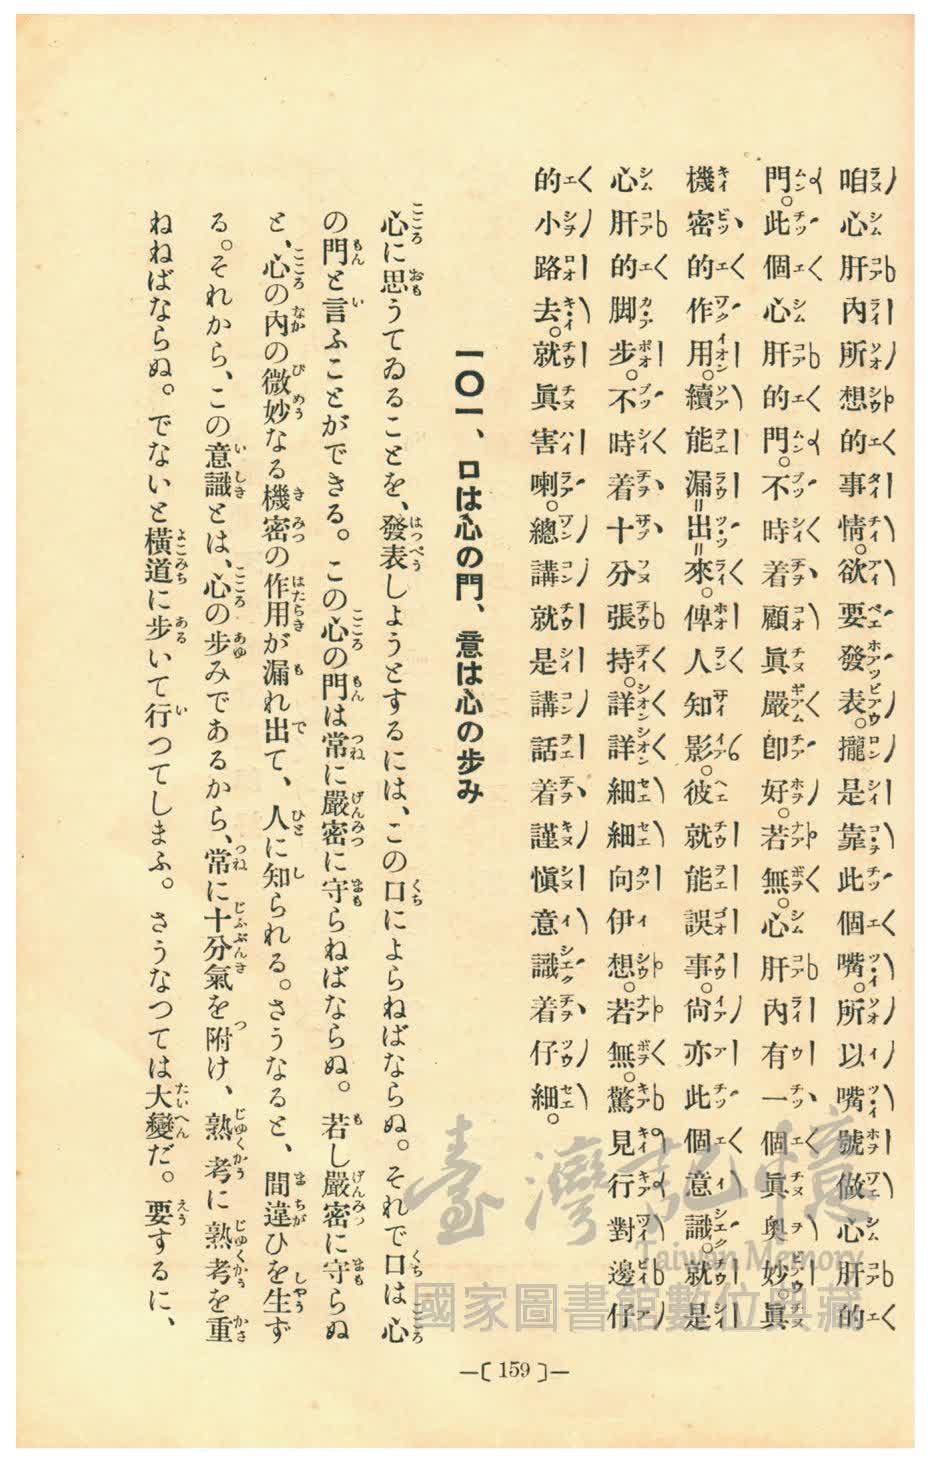 咱心肝內所想的事情。欲要發表。攏是靠此個嘴。所以嘴號做心肝的
門。此個心肝的門。不時着顧眞嚴卽好。若無。心肝內有一個眞奧妙。眞
機密的作用。續能漏=出=來。俾人知影。彼就能誤事。尙亦此個意識。就是
心肝的脚步。不時着十分張持。詳詳細細向伊想。若無。驚見行對邊仔
的小路去。就眞害喇。總講就是講話着謹愼意識着仔細。
一〇一、口は心の門、意は心の步み
心に思うてゐることを、發表しようとするには、この口によらねばならぬ。それで口は心
の門と言ふことができる。この心の門は常に嚴密に守らねばならぬ。若し嚴密に守らぬ
と、心の內の微妙なる機密の作用が漏れ出て、人に知られる。さうなると、間違ひを生ず
る。それから、この意識とは、心の步みであるから、常に十分氣を附け、熟考に熟考を重
ねねばならぬ。でないと橫道に步いて行つてしまふ。さうなつては大變だ。要するに、
—〔159〕—
臺灣記憶
Taiwan Memory
國家圖書館數位典藏